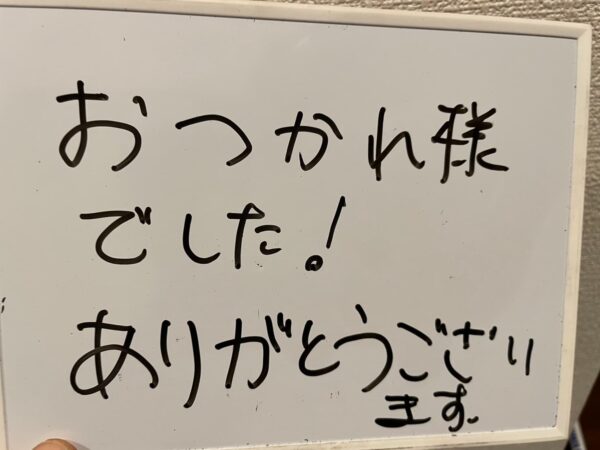 おつかれ様
でした!
ありがとうござい
ます.